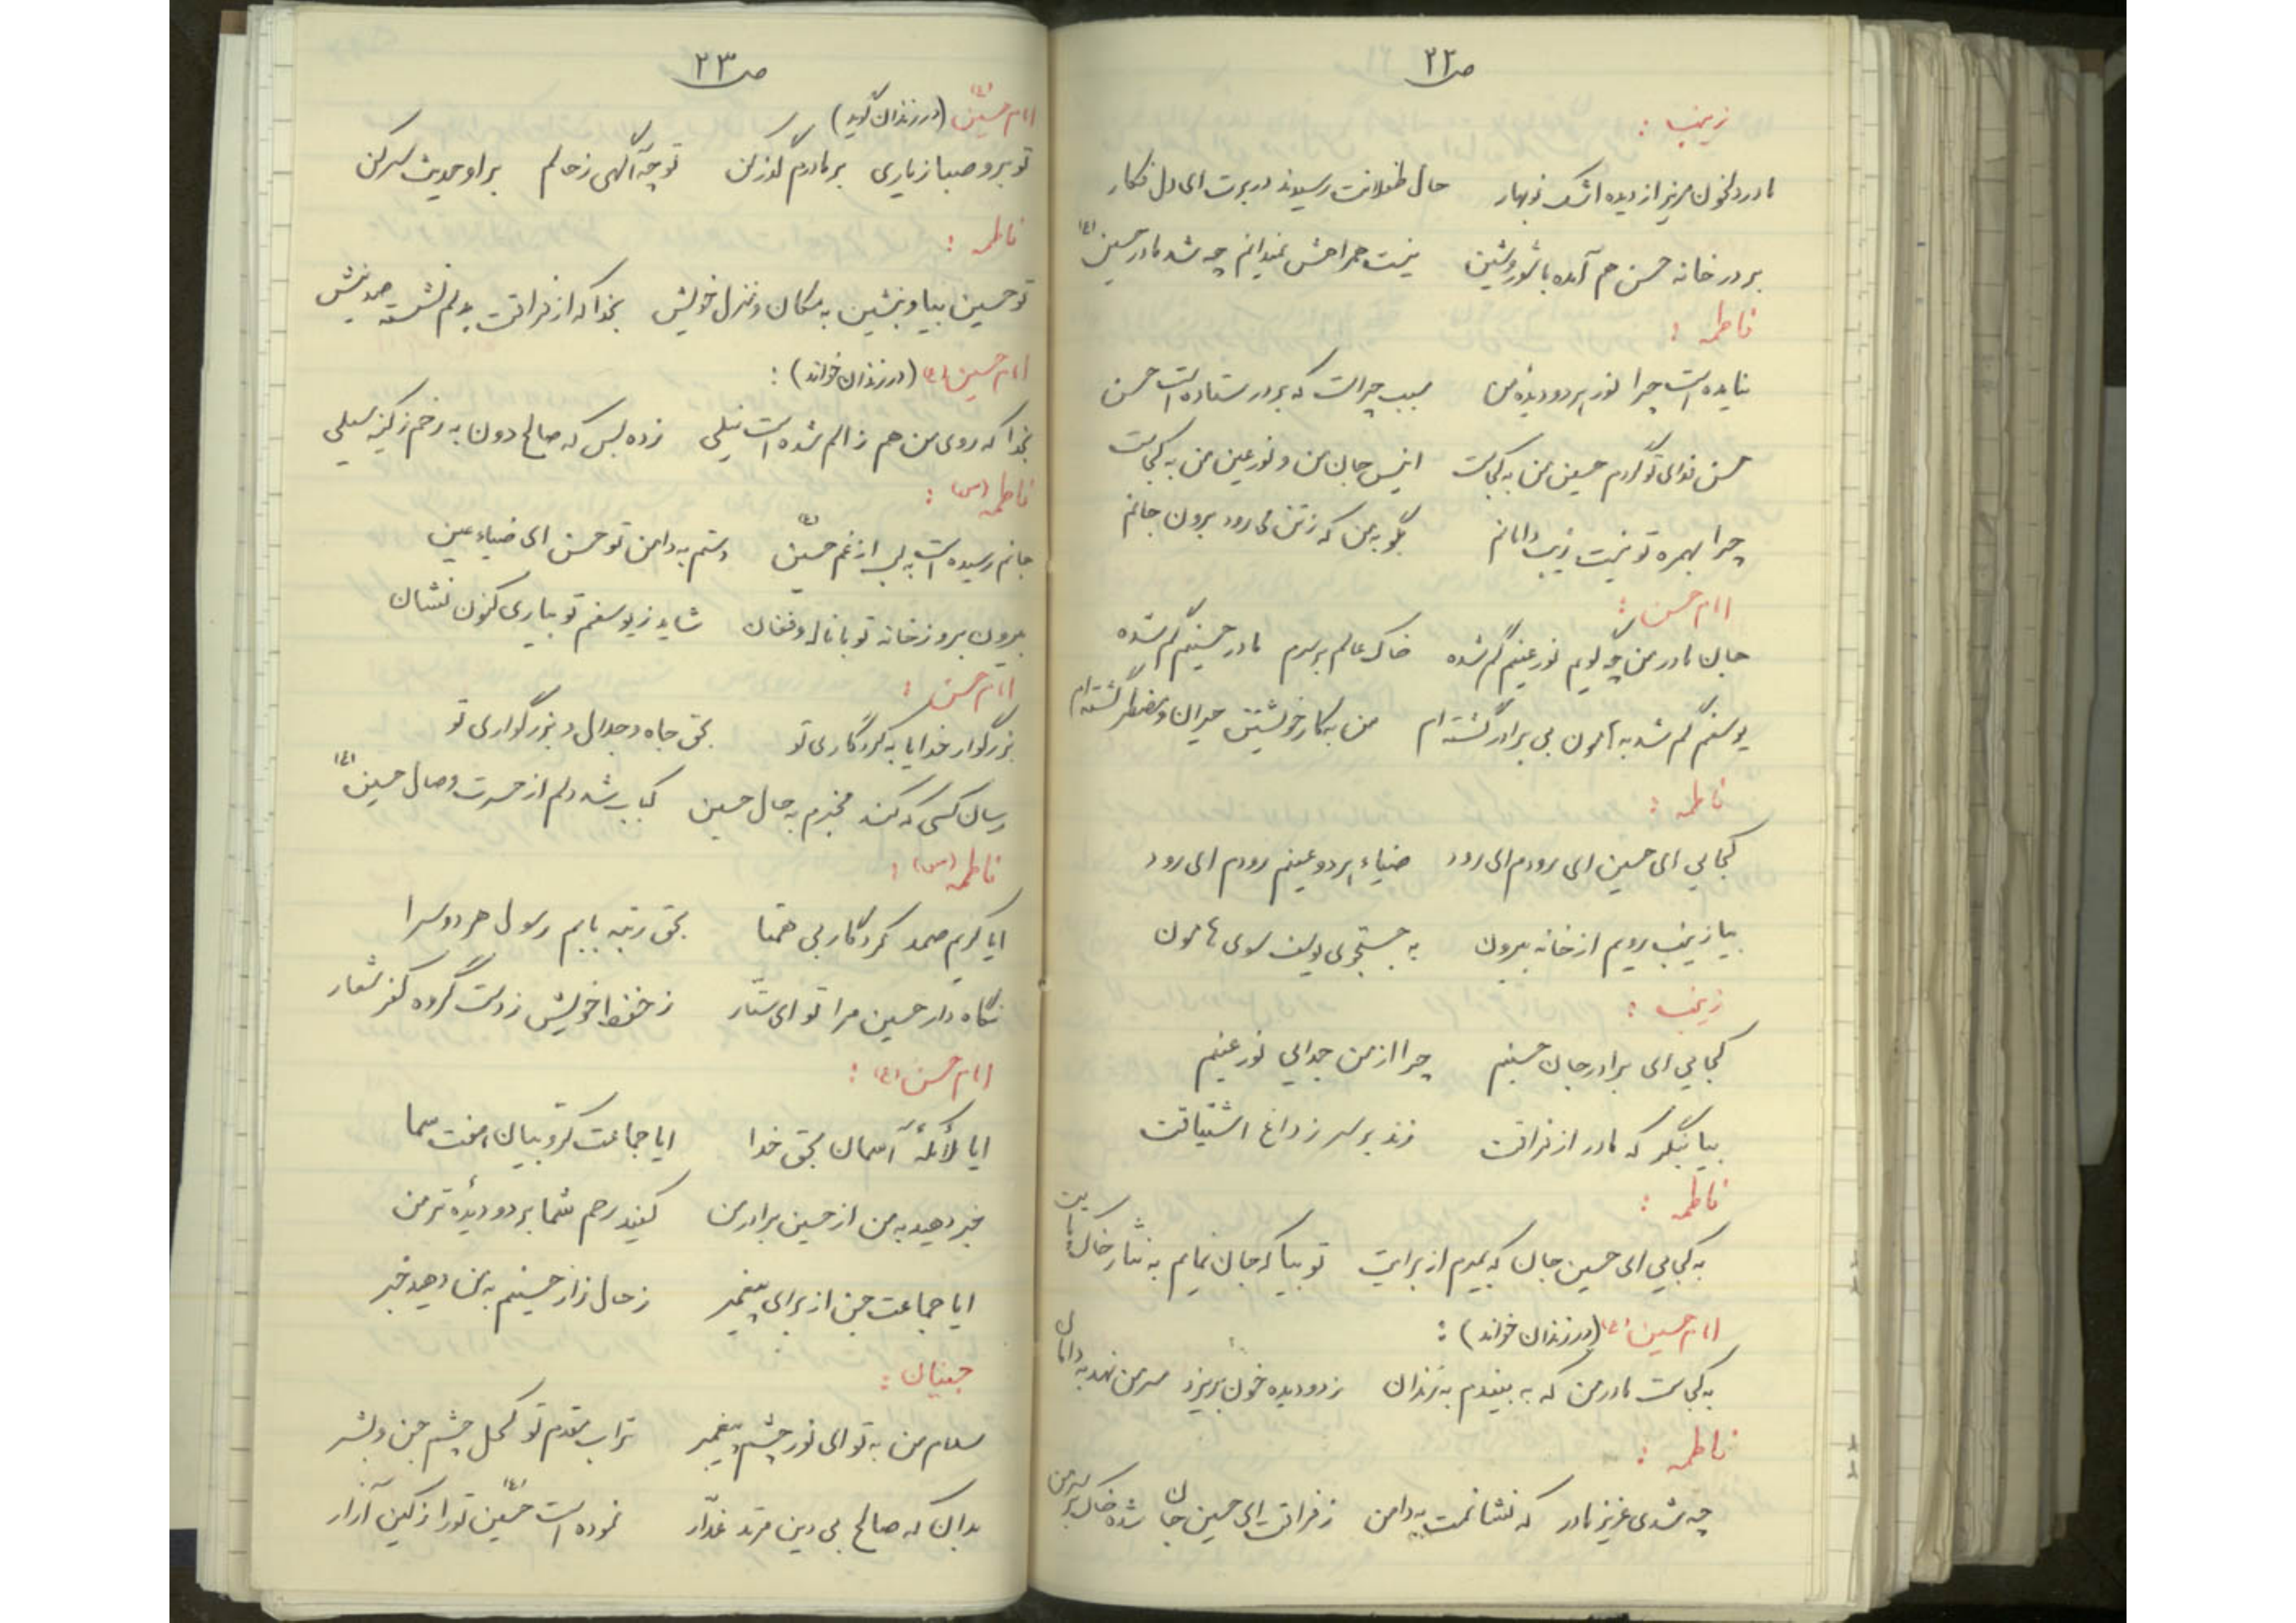 ص ۲۲
زینب :
مادر دلخون مریز از دیده اشک نوبهار حال طفلانت رسیدند در برت ای دل فکار
بر در خانه حسن هم آمده با شور و شین نیست همراهش نمیدانم چه شد مادر حسین (ع)
فاطمه :
نیامده است چرا نور هر دو دیده من سبب چراست که بر در ستاده است حسن
حسن فدای تو گردم حسین من به کجاست انیس جان من و نور عین من به کجاست
چرا بهمره تو نیست زیب دامانم بگو به من که ز تن می رود برون جانم
امام حسن :
جان مادر من چه گویم نور عینم گم شده خاک عالم بر سرم مادر حسینم گم شده
یوسفم گم شد به هامون بی برادر گشته ام من به کار خویشتن حیران و مضطر گشته ام
فاطمه :
کجایی ای حسین ای رودم ای رود ضیاء هر دو عینم رودم ای رود
بیا زینب رویم از خانه بیرون به جستجوی یوسف سوی هامون
زینب :
کجایی ای برادر جان حسینم چرا از من جدایی نور عینم
بیا بنگر که مادر از فراقت زند بر سر ز داغ اشتیاقت
فاطمه :
به کجایی ای حسین جان که بمیرم از برایت تو بیا که جان نمایم به نثار خاک پایت
امام حسین (ع) (در زندان خواند) :
به کجاست مادر من که به بیندم به زندان ز دو دیده خون بریزد سر من نهد به دامان
فاطمه :
چه شدی عزیز مادر که نشانمت به دامن ز فراقت ای حسین جان شده خاک بر سر من
ص ۲۳
امام حسین (ع) (در زندان گوید)
تو برو صبا ز یاری بر مادرم گذر کن تو چه آگهی ز حالم بر او حدیث سر کن
فاطمه :
تو حسین بیا و بنشین به مکان و منزل خویش بخدا که از فراقت به دلم نشسته صد نیش
امام حسین (ع) (در زندان خواند) :
بخدا که روی من هم ز الم شده است نیلی زده بس که صالح دون به رخم ز کینه سیلی
فاطمه (س) :
جانم رسیده است به لب از غم حسین (ع) دستم به دامن تو حسن ای ضیاء عین
بیرون برو ز خانه تو با ناله و فغان شاید ز یوسفم تو بیاری کنون نشان
امام حسن :
بزرگوار خدایا به کردگاری تو بحق جاه و جلال و بزرگواری تو
رسان کسی که کند مخبرم به حال حسین کباب شد دلم از حسرت وصال حسین (ع)
فاطمه (س) :
ایا کریم صمد کردگار بی همتا بحق رتبه بابم رسول هر دو سرا
نگاه دار حسین مرا تو ای ستّار ز حفظ خویش ز دست گروه کفر شعار
امام حسن (ع) :
ایا ملائکهٔ آسمان بحق خدا ایا جماعت کروبیان هفت سما
خبر دهید به من از حسین برادر من کنید رحم شما بر دو دیدهٔ تر من
ایا جماعت جن از برای پیغمبر ز حال زار حسینم به من دهید خبر
جنیان :
سلام من به تو ای نور چشم پیغمبر تراب مقدم تو کحل چشم جن و بشر
بدان که صالح بی دین مرتد غدّار نموده است حسین (ع) تو را ز کین آزار